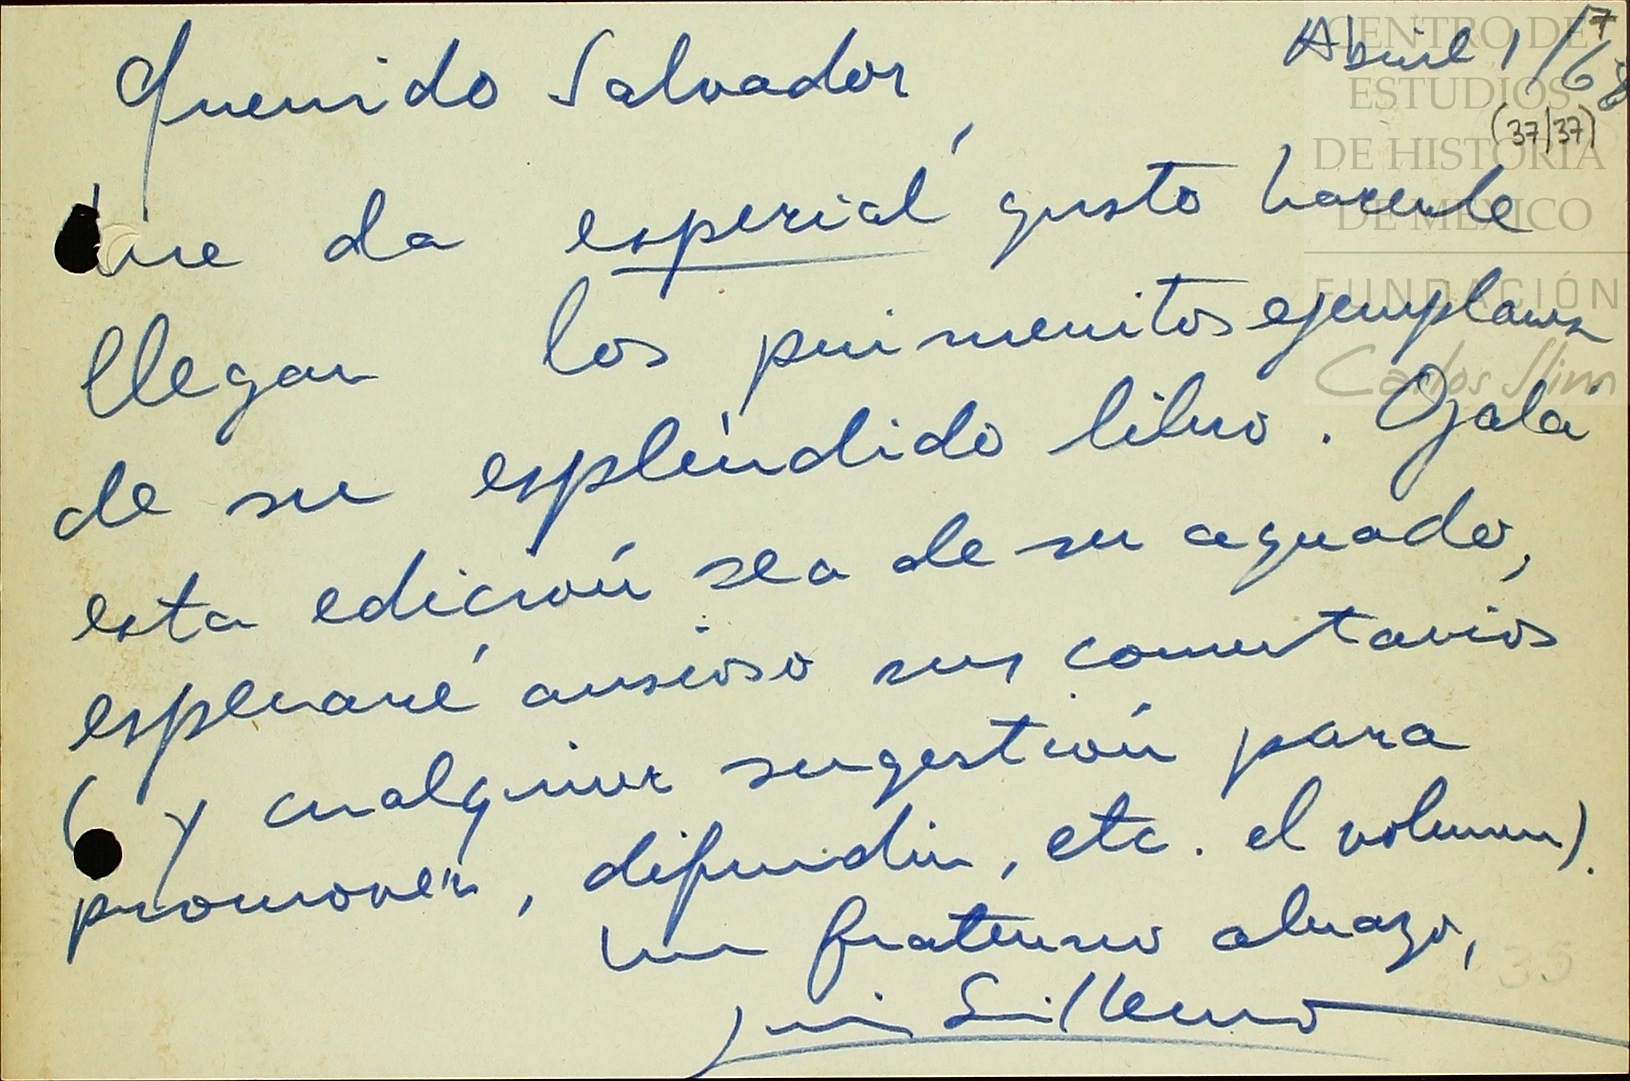 Abril 1/68
7
(37/37)
Querido Salvador,
me da especial gusto hacerle
llegar los primeritos ejemplares
de su espléndido libro. Ojalá
esta edición sea de su agrado,
esperaré ansioso sus comentarios
(y cualquier sugestión para
promover, difundir, etc. el volumen).
Un fraterno abrazo,
Luis Guillermo
35
CENTRO DE
ESTUDIOS
DE HISTORIA
DE MÉXICO
FUNDACIÓN
Carlos Slim